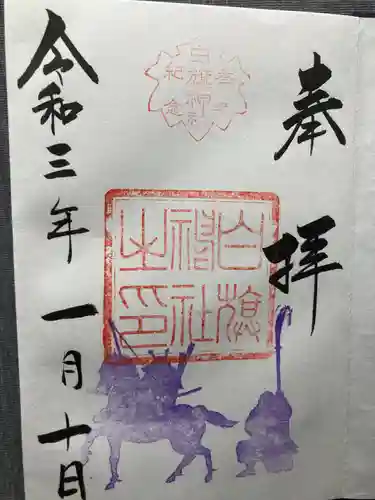 奉拝
白旗神社
参拝
記念
白旗神社之印
令和三年一月十日